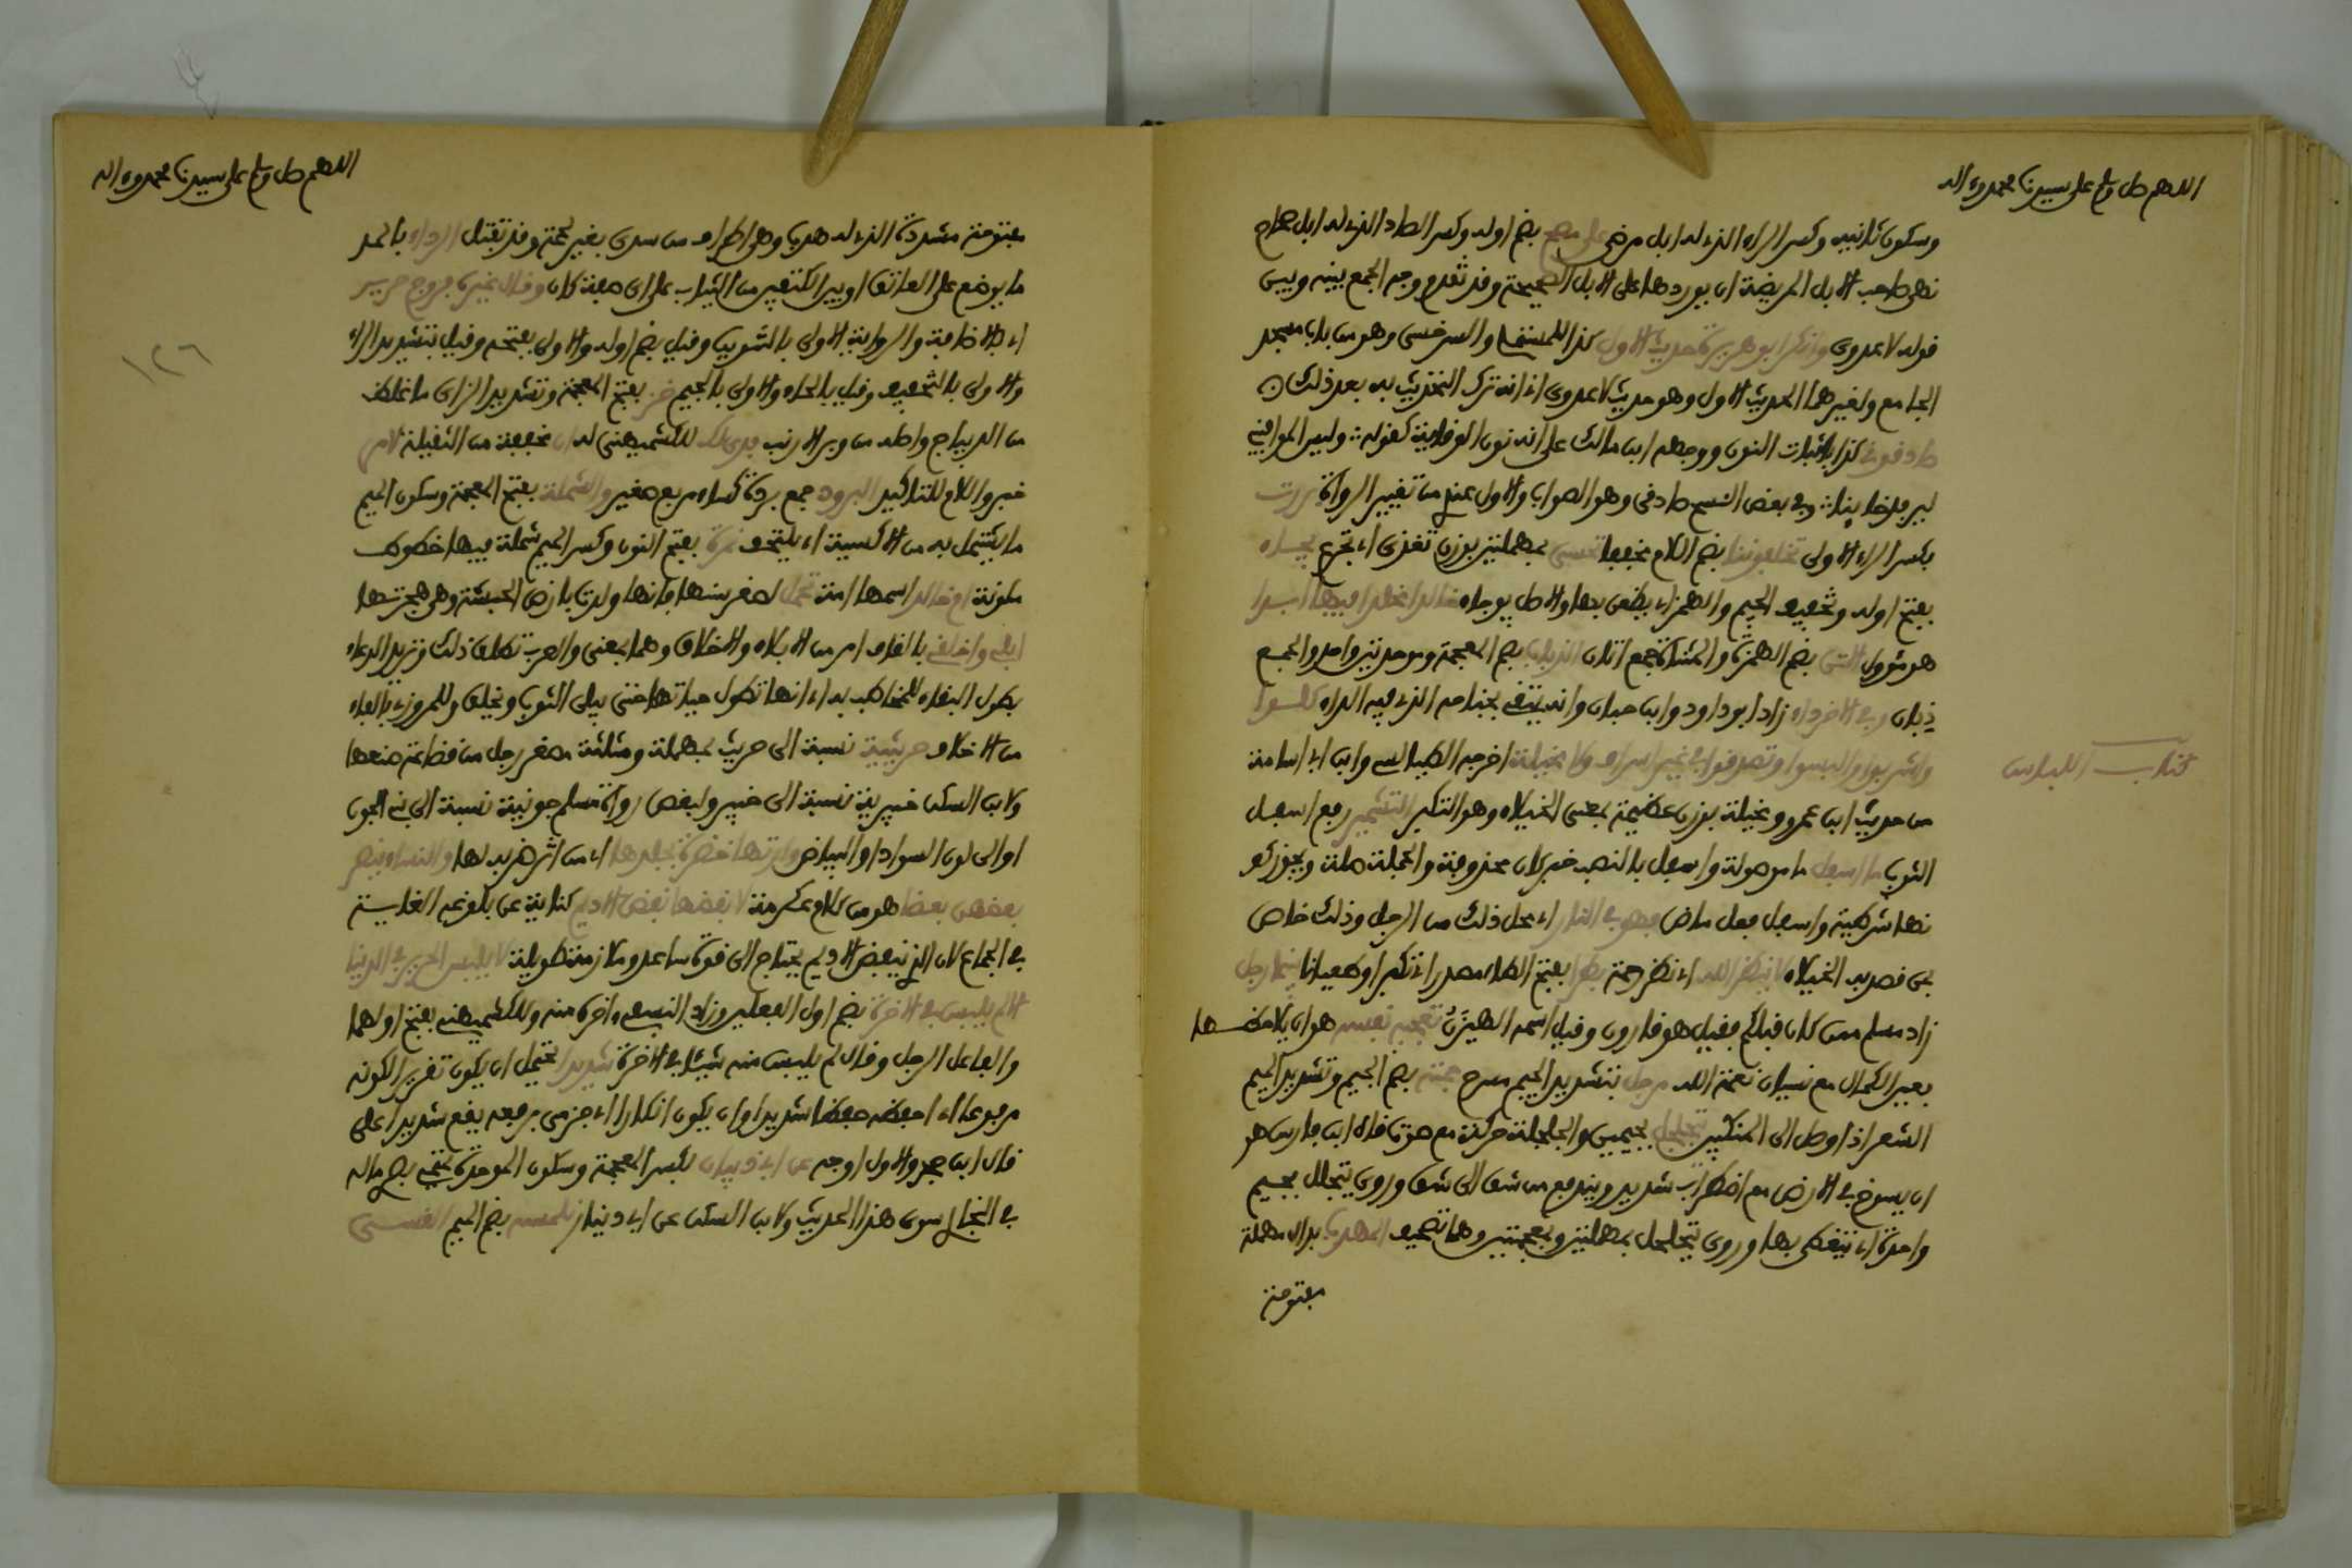 اللهم صل وسلم على سيدنا محمد وءاله
وسكون ثانيه وكسر الراء الذي له ابل مرضى على مصح بضم اوله وكسر الصاد الذي له ابل صحاح
نهى صاحب الابل المريضة ان يوردها على الابل الصحيحة وقد تقدم وجه الجمع بينه وبين
قوله لا عدوى وانكر ابو هريرة حديث الاول كذا للمستملي والسرخسي وهو من باب مسجد
الجامع ولغيرهما الحديث الاول وهو حديث لا عدوى اذ انه ترك التحديث به بعد ذلك
صادقوني كذا باثبات النون ووجهه ابن مالك على انه نون الوقاية كقوله وليس الموافيني
ليرفد خايبا وفي بعض النسخ صادقي وهو الصواب والاول عندي من تغيير الرواة بررت
بكسر الراء الاولى تخلفوننا بضم اللام مخففا تحسى بمهملتين بوزن تغذى اي تجرع يجاء
بفتح اوله وتخفيف الجيم والهمز اي يطعن بها والاصل يوجاء خالدا مخلدا فيها ابدا
هو مئوول الاتن بضم الهمزة والمثناة جمع اتان الذباب بضم المعجمة وموحدتين واحد والجمع
ذبان وفي الاخر داء زاد ابو داود وابن حبان وانه يتقي بجناحه الذي فيه الداء كلوا
واشربوا والبسوا وتصدقوا في غير اسراف ولا مخيلة اخرجه الطيالسي وابن ابي اسامة
كتاب اللباس
من حديث ابن عمرو ومخيلة بوزن عظيمة بمعنى الخيلاء وهو التكبر التشمير رفع اسفل
الثوب ما اسفل ما موصولة واسفل بالنصب خبر كان محذوفة والجملة صلة ويجوز كو
نها شرطية واسفل فعل ماض فهو في النار اي محل ذلك من الرجل وذلك خاص
بمن قصد به الخيلاء لا ينظر الله اي نظر رحمة بطرا بفتح الطاء مصدر اي تكبرا وطغيانا بينما رجل
زاد مسلم ممن كان قبلكم فقيل هو قارون وقيل اسمه الهيزن تعجبه نفسه هو ان يلاحظها
بعين الكمال مع نسيان نعمة الله مرجل بتشديد الجيم مسرح جمته بضم الجيم وتشديد الميم
الشعر اذا وصل الى المنكبين يتجلجل بجيمين والجلجلة حركة مع صوت قال ابن فارس هو
ان يسوخ في الارض مع اضطراب شديد ويندفع من شق الى شق وروى يتجلل بجيم
واحدة اي يتغطى بها وروى يتخلخل بمهملتين وبمعجمتين وهما تصحيف المهدب بدال مهملة
مفتوحة
اللهم صل وسلم على سيدنا محمد وءاله
مفتوحة مشددة الذي له هدب وهي اطراف من سدى بغير لحمة وقد تفتل الرداء بالمد
ما يوضع على العاتق او بين الكتفين من الثياب على اي صفة كان وقال غيره فروج حرير
اي بالاضافة والرواية الاولى بالتنوين وقيل بضم اوله والاولى بفتحه وقيل بتشديد الراء
١٢٦
والاولى بالتخفيف وقيل بالحاء والاولى بالجيم خز بفتح المعجمة وتشديد الزاي ما غلظ
من الديباج واصله من وبر الارنب فدى لك للكشميهني له ان مخففة من الثقيلة لامر
خبر واللام للتاكيد البرود جمع بردة كساء مربع صغير والشملة بفتح المعجمة وسكون الميم
ما يشتمل به من الاكسية اي يلتحف نمرة بفتح النون وكسر الميم شملة فيها خطوط
ملونة ام خالد اسمها امة تحمل لصغر سنها فانها ولدت بارض الحبشة وهي هجرتها
ابلي واخلقي بالقاف امر من الابلاء والاخلاق وهما بمعنى والعرب تطلق ذلك وتريد الدعاء
بطول البقاء للمخاطب به اي انها تطول حياتها حتى يبلى الثوب ويخلق وللمروزي بالفاء
من الاخلاف حريثية نسبة الى حريث بمهملة ومثلثة مصغر رجل من قضاعة صنعها
ولابن السكن خيبرية نسبة الى خيبر ولبعض رواة مسلم جونية نسبة الى بني الجون
او الى لون السواد او البياض وارتها خضرة بجلدها اي من اثر ضربه لها والنساء ينصر
بعضهن بعضا هو من كلام عكرمة لانفضها نفض الاديم كناية عن بلوغه الغاية
في الجماع لان الذي ينفض الاديم يحتاج الى قوة ساعد وملازمة طويلة لا يلبس الحرير في الدنيا
الا لم يلبس في الاخرة بضم اول الفعلين وزاد النسفي واخره منه وللكشميهني بفتح اولهما
والفاعل الرجل وقال لم يلبس منه شيئا في الاخرة شديدا يحتمل ان يكون تقريرا لكونه
مرفوعا اي احفظه حفظا شديدا وان يكون انكارا اي جزمى برفعه يقع شديدا على
قال ابن حجر والاول اوجه عن ابي ذبيان بكسر المعجمة وسكون الموحدة ماله
في البخاري سوى هذا الحديث ولابن السكن عن ابي دينار نلمسه بضم الميم القسي